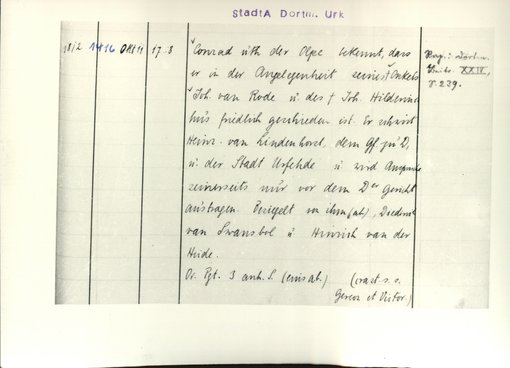 StadtA Dortm. Urk
1812 1416 Okt 11 17.8 Conrad uth der Olpe bekennt, dass
er in der Angelegenheit seines † Onkels
Joh. van Rode u. des † Joh. Hildernis-
hus friedlich geschieden ist. Er schwört
Heinr. van Lindenhorst, dem Gf. zu D.,
u. der Stadt Urfehde u. wird Ansprüche
seinerseits nur vor dem Der Gericht
austragen. Besiegelt von ihm (ab), Diederich
van Swansbol u. Hinrich van der
Heide.
Or. Pgt. 3 anh. S. (eins ab.) (crast. s. s.
Gereon et Victor.)
Reg.: Dortm.
Beitr. XXIV,
S. 239.